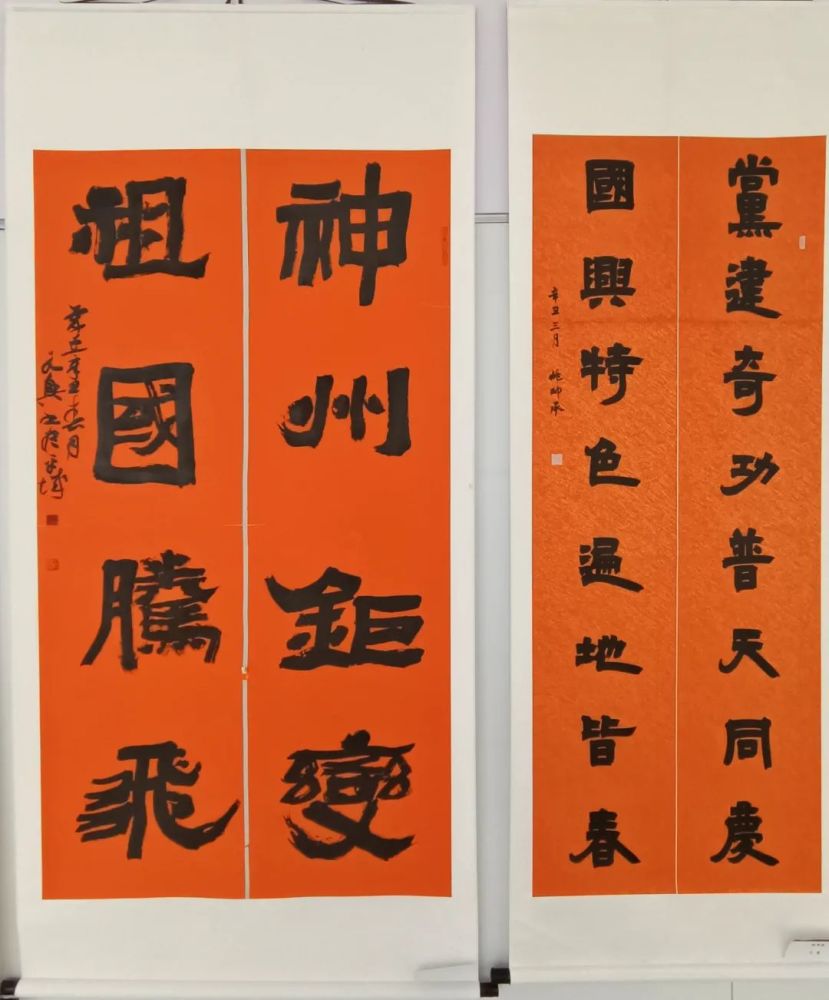 黨建奇功普天同慶
國興特色遍地皆春
辛丑三月
神州鉅變
祖國騰飛